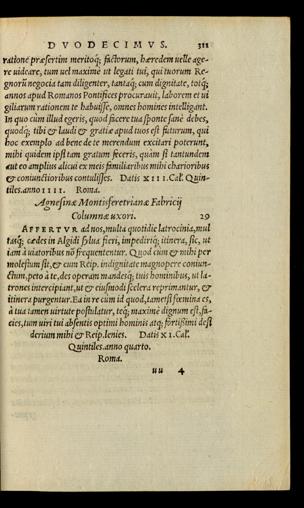 DVODECIMVS. 311
ratione præsertim meritoq; factorum, hæredem uelle age-
re uideare, tum uel maxime ut legati tui, qui tuorum Re-
gnorũ negocia tam diligenter, tantaq; cum dignitate, totq;
annos apud Romanos Pontifices procurauit, laborem et ui
giliarum rationem te habuisse, omnes homines intelligant.
In quo cùm illud egeris, quod facere tua sponte sanè debes,
quodq; tibi & laudi & gratiæ apud tuos est futurum, qui
hoc exemplo ad bene de te merendum excitari poterunt,
mihi quidem ipsi tam gratum feceris, quàm si tantundem
aut eo amplius alicui ex meis familiaribus mihi charioribus
& coniunctioribus contulisses. Datis XIII. Cal. Quin-
tiles. anno IIII. Roma.
Agesinæ Montisferetrianæ Fabricij
Columnæ uxori. 29
AFFERTVR ad nos, multa quotidie latrocinia, mul
tasq; cædes in Algidi sylua fieri, impediriq; itinera, sic, ut
iam à uiatoribus nõ frequententur. Quod cum & mihi per
molestum sit, & cum Reip. indignitate magnopere coniun-
ctum, peto à te, des operam mandesq; tuis hominibus, ut la-
trones intercipiant, ut & eiusmodi scelera reprimantur, &
itinera purgentur. Ea in re cùm id quod, tametsi fœmina es,
à tua tamen uirtute postulatur, teq; maximè dignum est, fa-
cies, tum uiri tui absentis optimi hominis atq; fortissimi desi
derium mihi & Reip. lenies. Datis XI. Cal.
Quintiles. anno quarto.
Roma.
uu 4